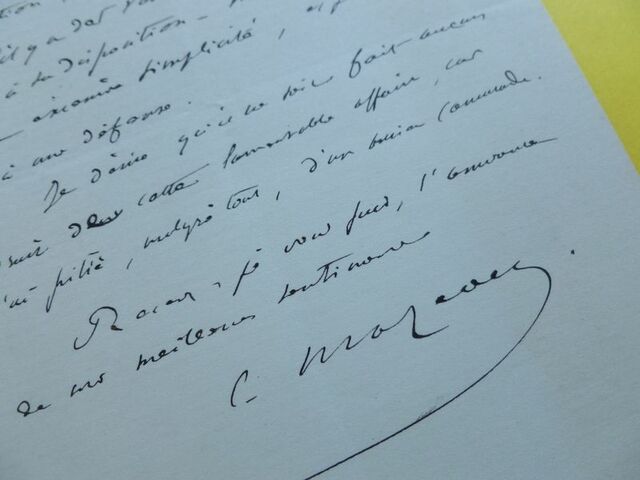 il y a dans
à sa disposition -
excessive simplicité, et
à ma défense.
Je désire qu'il ne soit fait aucun
dans cette lamentable affaire, car
j'ai pitié, malgré tout, d'un ancien camarade.
Recevez, je vous prie, l'assurance
de mes meilleurs sentiments
C. Mazeau